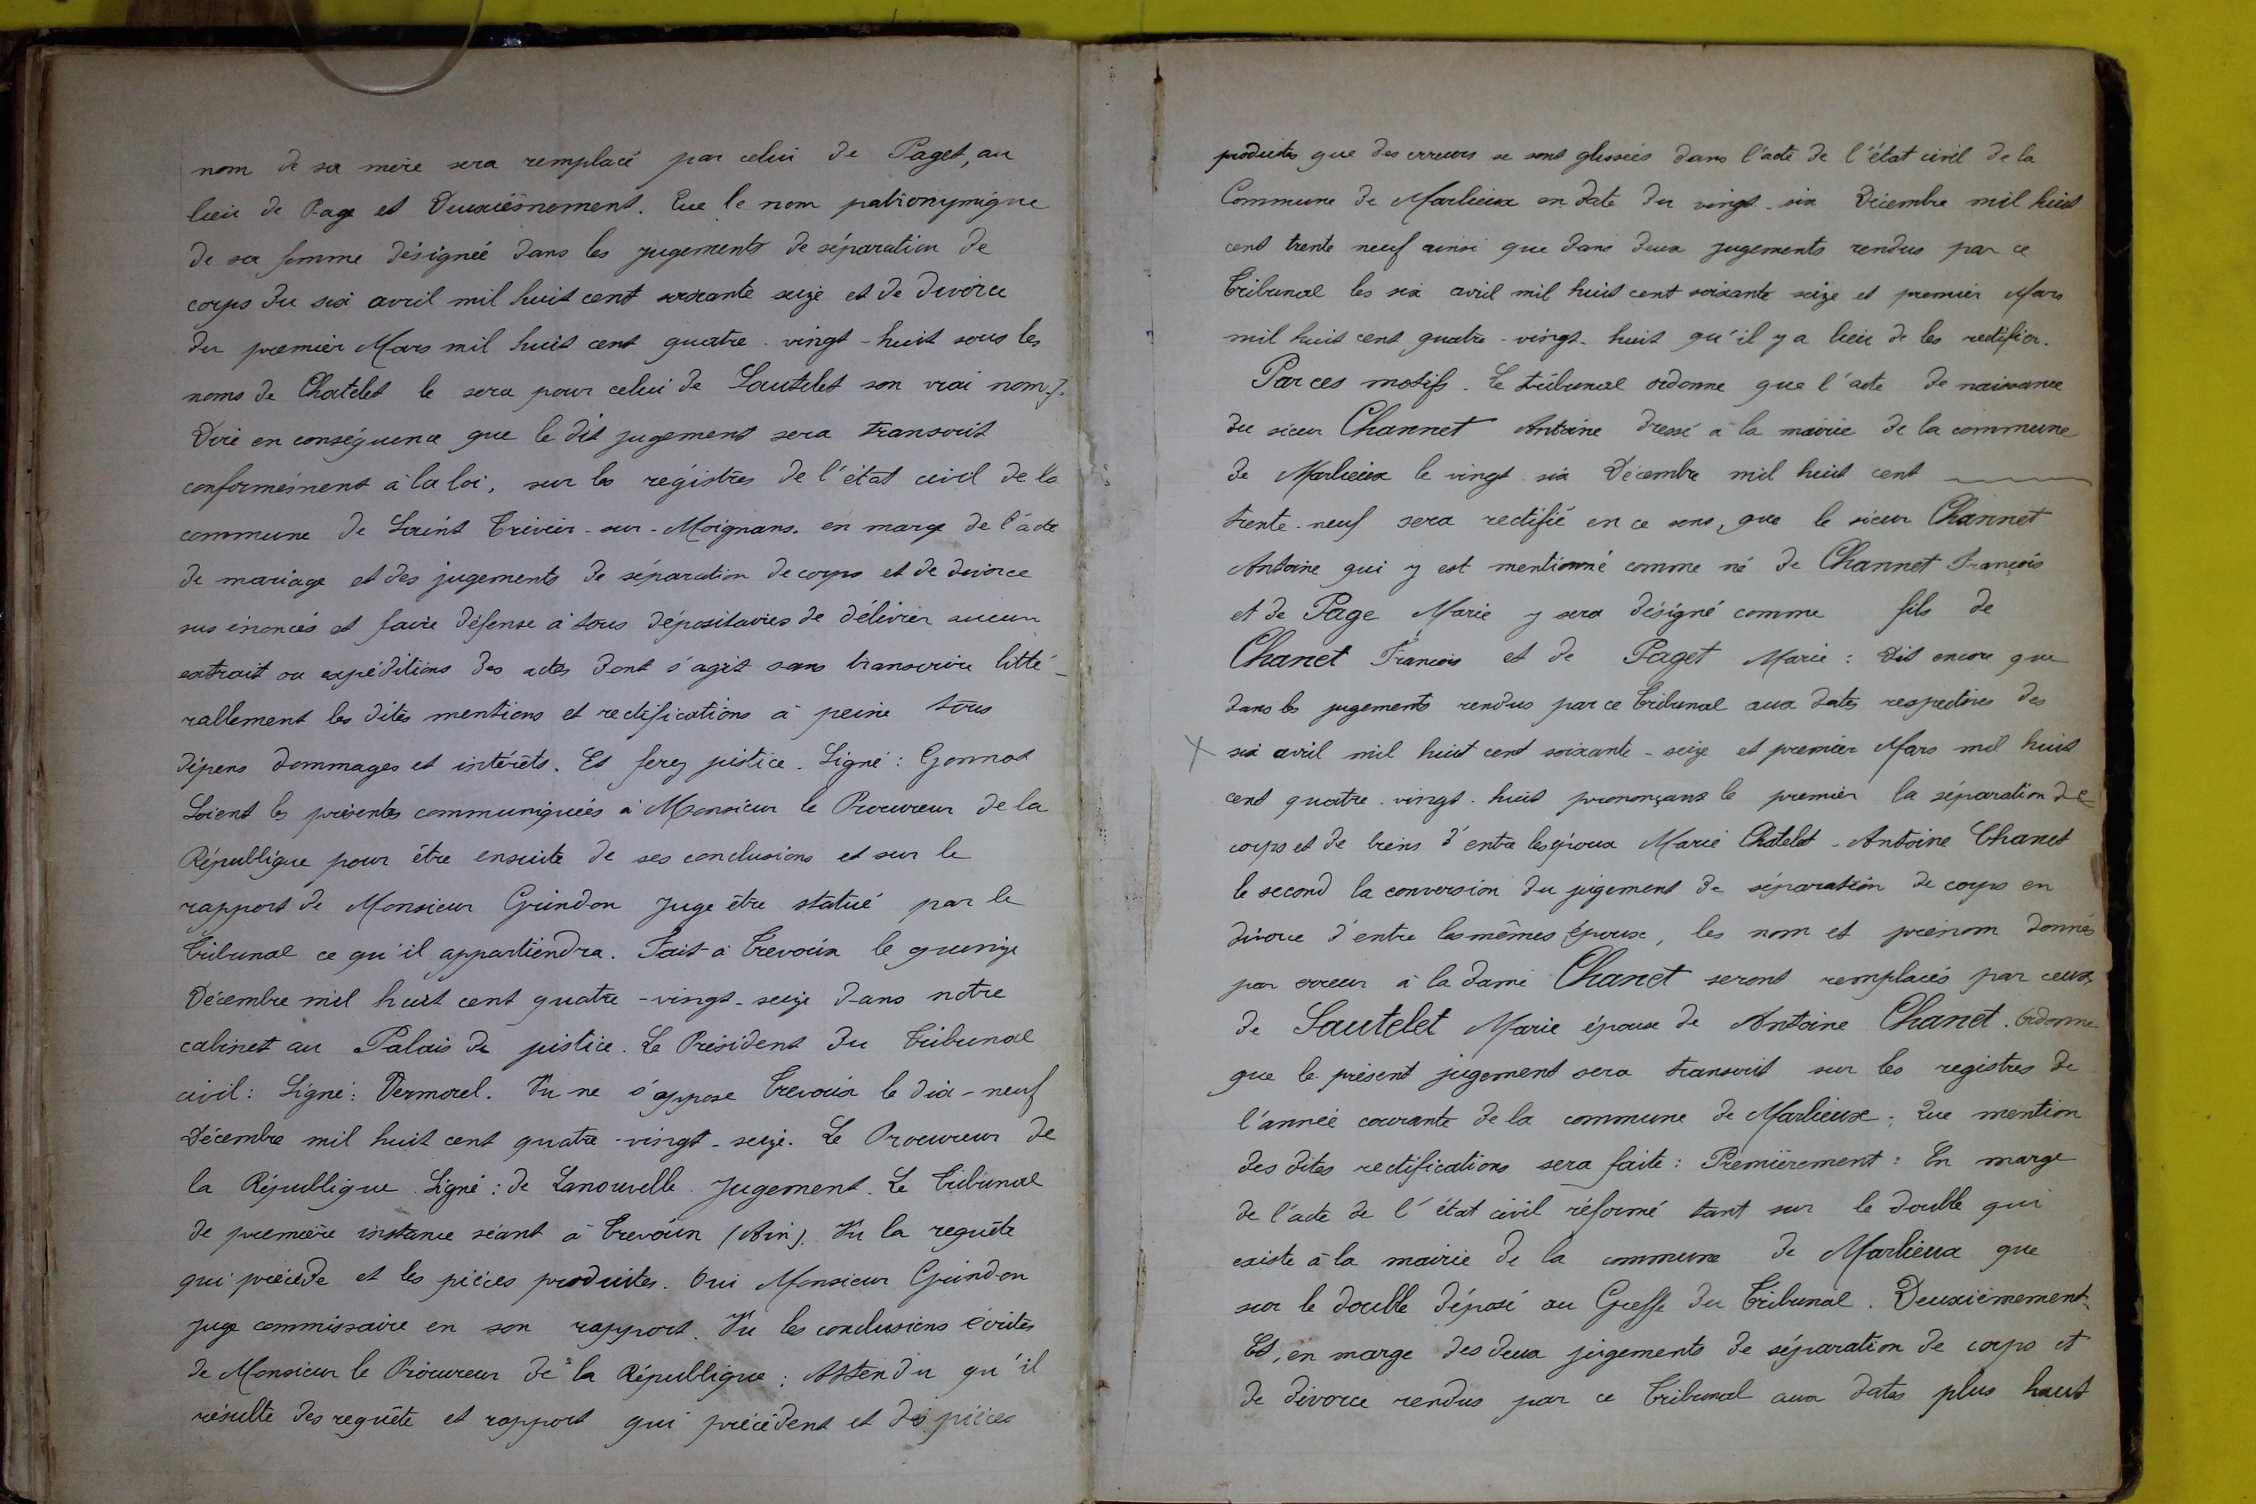 nom de sa mère sera remplacé par celui de Paget, au
lieu de Page et Deuxièmement. Que le nom patronymique
de sa femme désignée dans les jugements de séparation de
corps du six avril mil huit cent soixante seize et de divorce
du premier Mars mil huit cent quatre-vingt-huit sous les
noms de Chatelet le sera pour celui de Sautelet son vrai nom.
Dire en conséquence que le dit jugement sera transcrit
conformément à la loi, sur les régistres de l'état civil de la
commune de Saint Trivier-sur-Moignans. en marge de l'acte
de mariage et des jugements de séparation de corps et de divorce
sus énoncés et faire défense à tous dépositaires de délivrer aucun
extrait ou expéditions des actes dont s'agit sans transcrire litté-
rallement les dites mentions et rectifications à peine tous
dépens dommages et intérêts. Et ferez justice. Signé : Gonnot
Soient les présentes communiquées à Monsieur le Procureur de la
République pour être ensuite de ses conclusions et sur le
rapport de Monsieur Grindon Juge être statué par le
Tribunal ce qu'il appartiendra. Fait à Trevoux le quinze
Décembre mil huit cent quatre-vingt-seize dans notre
cabinet au Palais de justice. Le Président du Tribunal
civil : Signé : Vermorel. Vu ne s'oppose Trevoux le dix-neuf
Décembre mil huit cent quatre-vingt-seize. Le Procureur de
la République. Signé : de Lanouvelle. Jugement. Le Tribunal
de première instance séant à Trevoux (Ain). Vu la requête
qui précède et les pièces produites. Oui Monsieur Grindon
juge commissaire en son rapport. Vu les conclusions écrites
de Monsieur le Procureur de la République ; Attendu qu'il
résulte des requête et rapport qui précèdent et des pièces
produites que des erreurs se sont glissées dans l'acte de l'état civil de la
Commune de Marlieux en date du vingt-six Décembre mil huit
cent trente neuf ainsi que dans deux jugements rendus par ce
Tribunal les six avril mil huit cent soixante seize et premier Mars
mil huit cent quatre-vingt-huit qu'il y a lieu de les rectifier.
Par ces motifs. Le tribunal ordonne que l'acte de naissance
du sieur Channet Antoine dressé à la mairie de la commune
de Marlieux le vingt six Décembre mil huit cent
trente-neuf sera rectifié en ce sens, que le sieur Channet
Antoine qui y est mentionné comme né de Channet François
et de Page Marie y sera désigné comme fils de
Chanet François et de Paget Marie : Dit encore que
dans les jugements rendus par ce Tribunal aux dates respectives des
X six avril mil huit cent soixante-seize et premier Mars mil huit
cent quatre-vingt-huit prononçant le premier la séparation de
corps et de biens d'entre les époux Marie Chatelet - Antoine Chanet
le second la conversion du jugement de séparation de corps en
divorce d'entre les mêmes époux, les nom et prénom donnés
par erreur à la dame Chanet seront remplacés par ceux
de Sautelet Marie épouse de Antoine Chanet. Ordonne
que le présent jugement sera transcrit sur les registres de
l'année courante de la commune de Marlieux ; Que mention
des dites rectifications sera faite : Premièrement : En marge
de l'acte de l'état civil réformé tant sur le double qui
existe à la mairie de la commune de Marlieux que
sur le double déposé au Greffe du Tribunal. Deuxièmement.
Et, en marge des deux jugements de séparation de corps et
de divorce rendus par ce Tribunal aux dates plus haut